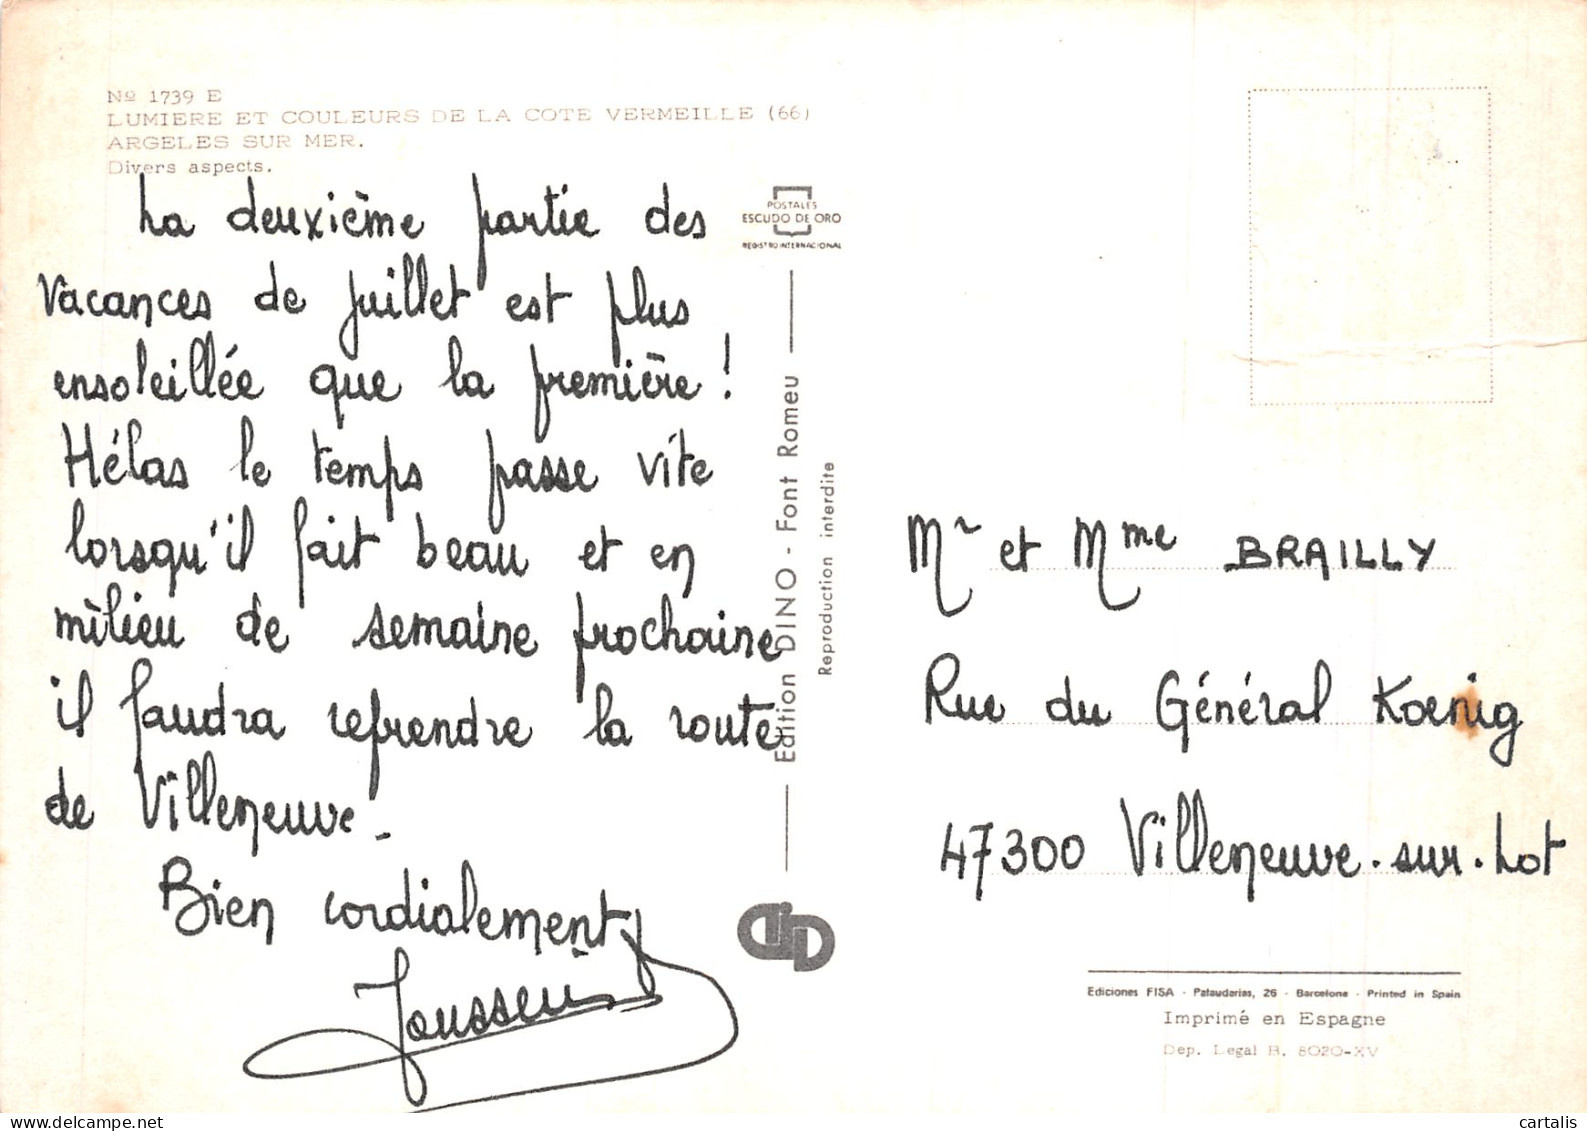 Nº 1739 E
LUMIERE ET COULEURS DE LA COTE VERMEILLE (66)
ARGELES SUR MER.
Divers aspects.
La deuxième partie des
vacances de juillet est plus
ensoleillée que la première !
Hélas le temps passe vite
lorsqu'il fait beau et en
milieu de semaine prochaine
il faudra reprendre la route
de Villeneuve.
Bien cordialement
POSTALES
ESCUDO DE ORO
REGISTRO INTERNACIONAL
Edition DINO - Font Romeu
Reproduction interdite
Mr et Mme BRAILLY
Rue du Général Koenig
47300 Villeneuve-sur-Lot
Ediciones FISA - Palaudarias, 26 - Barcelona - Printed in Spain
Imprimé en Espagne
Dep. Legal B. 8020-XV
cartalis